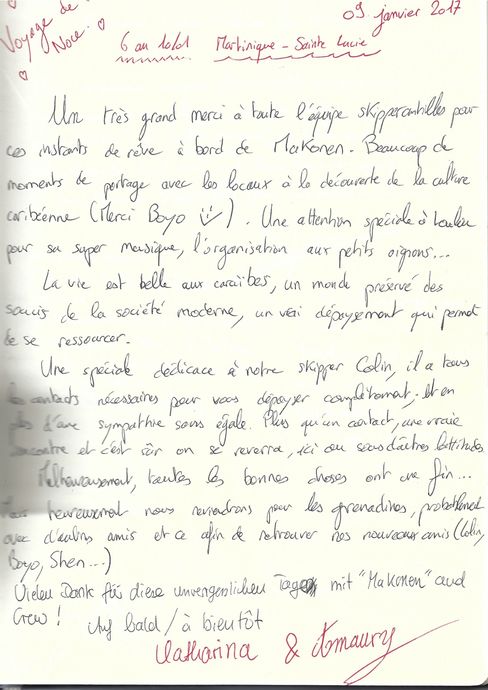 Voyage de Noce
09 janvier 2017
6 au 10/01 Martinique - Sainte Lucie
Un très grand merci à toute l'équipe skipperantilles pour
ces instants de rêve à bord de MaKonen. Beaucoup de
moments de partage avec les locaux à la découverte de la culture
caribéenne (Merci Boyo). Une attention spéciale à Loulou
pour sa super musique, l'organisation aux petits oignons...
La vie est belle aux caraïbes, un monde préservé des
soucis de la société moderne, un vrai dépaysement qui permet
de se ressourcer.
Une spéciale dédicace à notre skipper Colin, il a tous
les contacts nécessaires pour vous dépayser complètement, et en
plus d'une sympathie sans égale. Plus qu'un contact, une vraie
rencontre et c'est sûr on se reverra, ici ou sous d'autres lattitudes
Malheureusement, toutes les bonnes choses ont une fin...
heureusement nous reviendrons pour les grenadines, probablement
avec d'autres amis et ce afin de retrouver nos nouveaux amis (Colin,
Boyo, Shen...)
Vielen Dank für diese unvergesslichen Tage mit "MaKonen" and
Crew! Auf bald / à bientôt
Catharina & Amaury